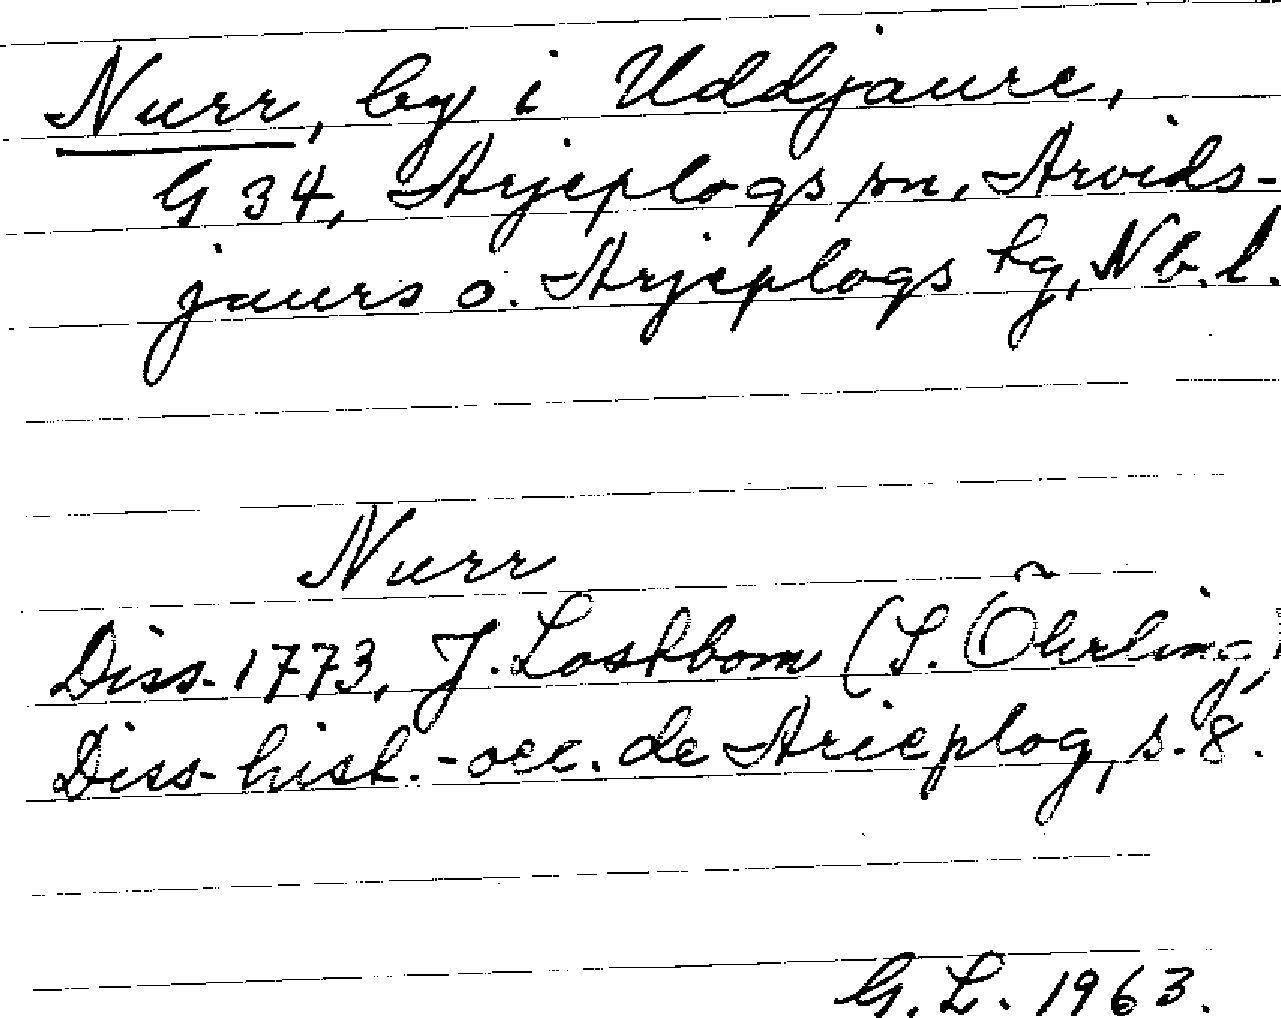 Nurr, by i Uddjaure,
G 34, Arjeplogs sn, Arvids-
jaurs o. Arjeplogs tg, Nb. l.
Nurr
Diss. 1773, J. Lostbom (S. Õhrling)
Diss. hist.-oec. de Arieplog, s. 8.
G. L. 1963.